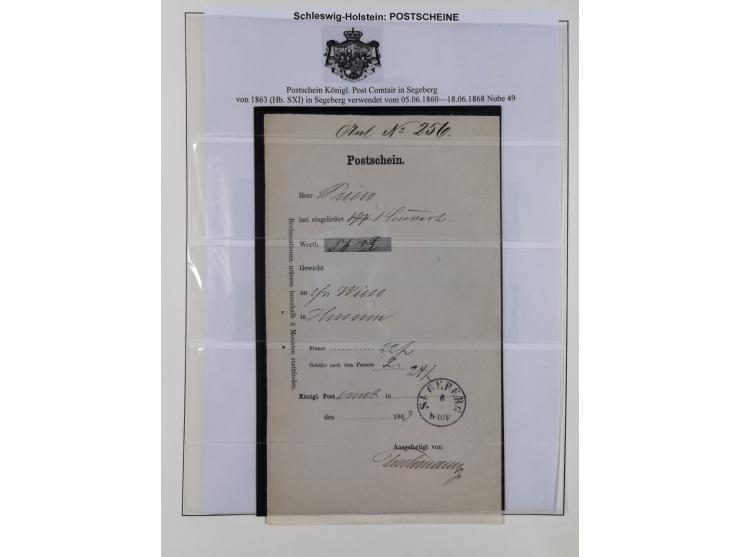 Schleswig-Holstein: POSTSCHEINE
Postschein Königl. Post Comtair in Segeberg
von 1863 (Hb. SXI) in Segeberg verwendet vom 05.06.1860—18.06.1868 Nube 49
Anl No 256.
Postschein.
Herr
hat eingeliefert 1 Couvert.
Werth
Gewicht
an Wieso
in Husum
Franco .......... 22
Gebühr nach dem Patente 2
24
Königl. Post amt in
den 1863
SEGEBERG
6
Ausgefertigt von
Reclamationen müssen innerhalb 3 Monaten stattfinden.